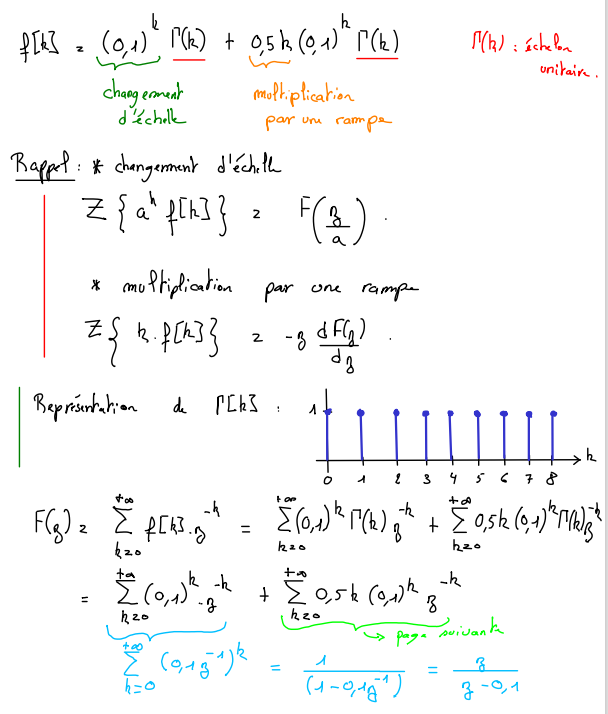 f[k] = (0,1)^k Γ(k) + 0,5k (0,1)^k Γ(k)
Γ(k) : échelon
unitaire.
changement
d'échelle
multiplication
par une rampe
Rappel : * changement d'échelle
Z { a^k f[k] } = F(z/a) .
* multiplication par une rampe
Z { k.f[k] } = -z dF(z)/dz .
Représentation de Γ[k] :
1
k
0 1 2 3 4 5 6 7 8
F(z) = ∑_{k=0}^{+∞} f[k].z^-k = ∑_{k=0}^{+∞} (0,1)^k Γ(k) z^-k + ∑_{k=0}^{+∞} 0,5k (0,1)^k Γ(k) z^-k
= ∑_{k=0}^{+∞} (0,1)^k . z^-k + ∑_{k=0}^{+∞} 0,5k (0,1)^k z^-k
↪ page suivante
∑_{k=0}^{+∞} (0,1z^-1)^k = 1/(1-0,1z^-1) = z/(z-0,1)